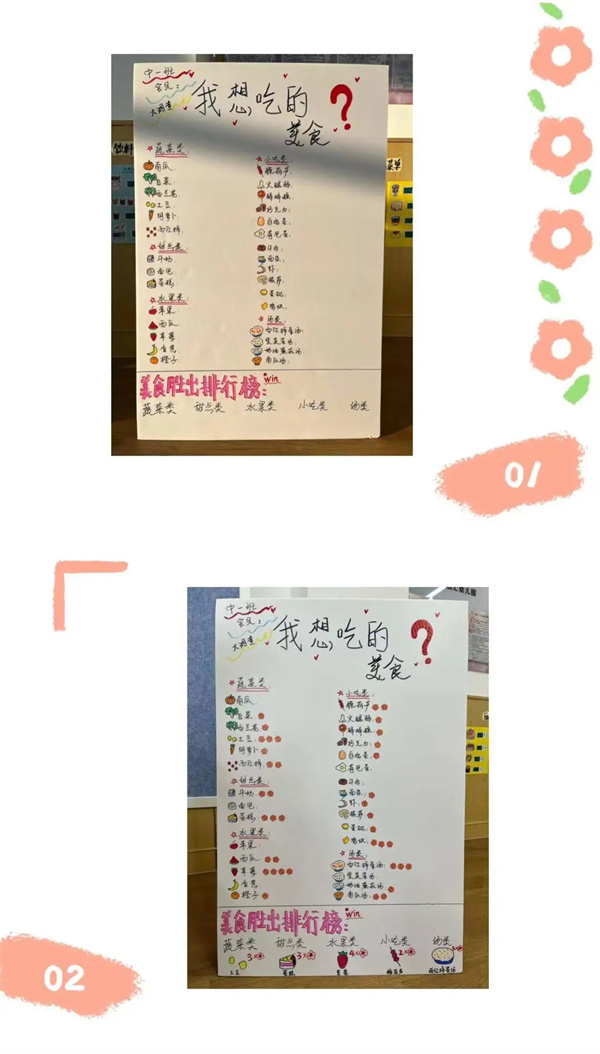 中一班
宝贝：
大调查
我想吃的
美食
？
饮料
蔬菜类：
南瓜
白菜
西兰花
土豆
胡萝卜
西红柿
甜点类：
牛奶
面包
蛋糕
水果类：
苹果
西瓜
草莓
香蕉
橙子
小吃类：
糖葫芦
火腿肠
烤肠
巧克力
荷包蛋
牛肉
面条
虾
蛋挞
鸡块
汤类：
西红柿蛋汤
紫菜蛋汤
南瓜汤
美食胜出排行榜：
win
蔬菜类 甜点类 水果类 小吃类 汤类
01
中一班
宝贝：
大调查
我想吃的
美食
？
蔬菜类：
南瓜
白菜
西兰花
土豆：
胡萝卜
西红柿
甜点类：
牛奶
面包
蛋糕
水果类：
苹果
西瓜
草莓
香蕉
橙子
小吃类：
糖葫芦
火腿肠
烤肠
巧克力
荷包蛋
牛肉
面条
虾
蛋挞
鸡块
汤类：
西红柿蛋汤
紫菜蛋汤
南瓜汤
美食胜出排行榜：
win
蔬菜类 甜点类 水果类 小吃类 汤类
3× 3× 4× 2× 3×
土豆 蛋糕 草莓 糖葫芦 西红柿蛋汤
02